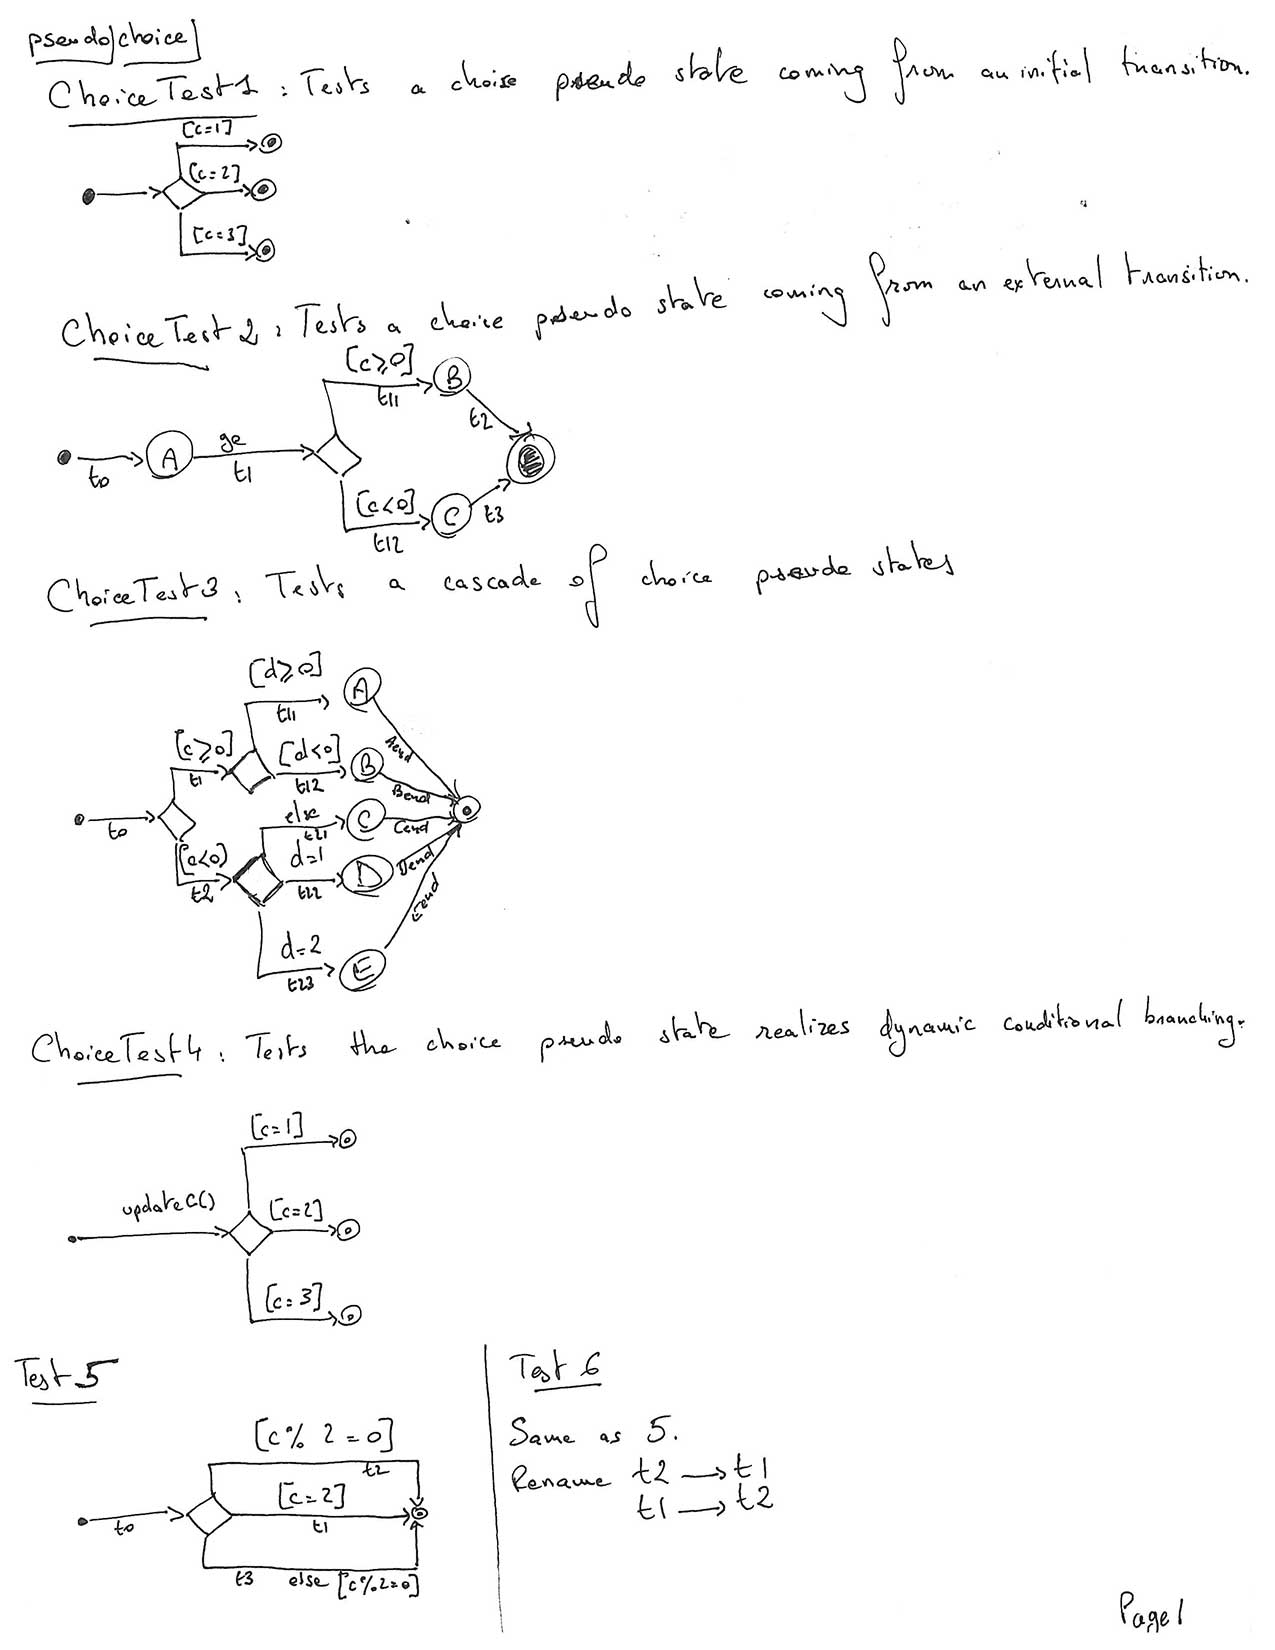 pseudo/choice/
ChoiceTest1 : Tests a choise pseudo state coming from an initial transition.
[c=1]
[c=2]
[c=3]
ChoiceTest2 : Tests a choice pseudo state coming from an external transition.
[c≥0]
B
t11
t2
ge
A
t0
t1
[c<0]
C
t3
t12
ChoiceTest3 : Tests a cascade of choice pseudo states
[d≥0]
A
t11
Aend
[c≥0]
[d<0]
B
t1
t12
Bend
else
C
t0
t21
Cend
[c<0]
d=1
D
Dend
t2
t22
Eend
d=2
E
t23
ChoiceTest4 : Tests the choice pseudo state realizes dynamic conditional branching.
[c=1]
updateC()
[c=2]
[c=3]
Test 5
[c% 2=0]
t2
[c=2]
t0
t1
t3 else [c%2=0]
Test 6
Same as 5.
Rename t2 → t1
t1 → t2
Page 1